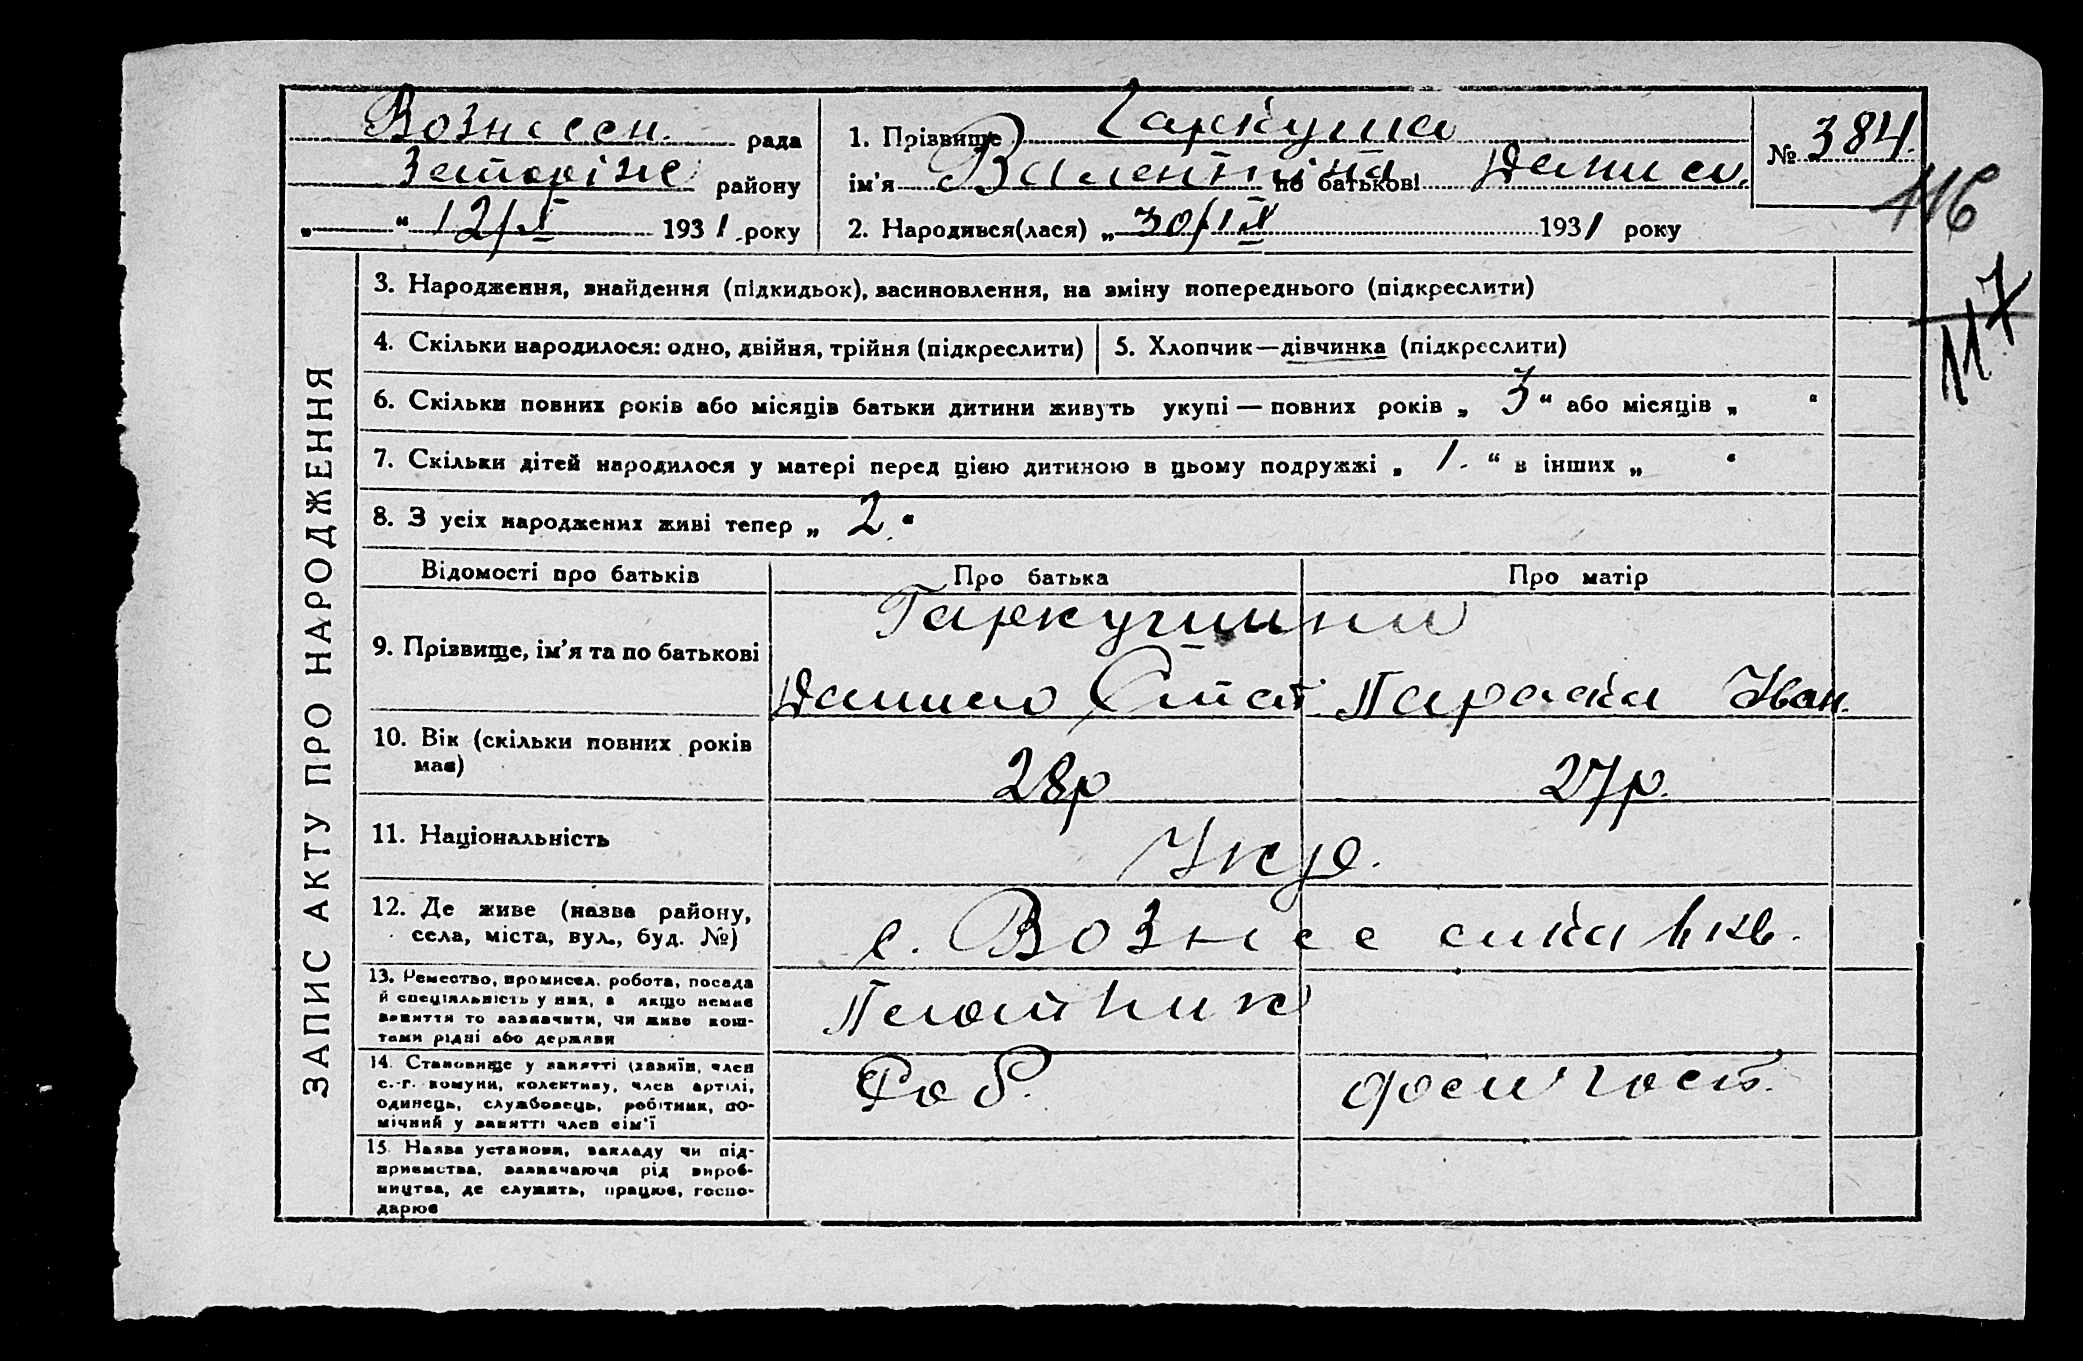 Вознесен. рада
Запоріж району
„ “ 12/X 1931 року
1. Прізвище Гаркуша
ім'я Валентина по батькові Данил.
2. Народився(лася) „ 30/IX 1931 року
№ 384.
116
117
ЗАПИС АКТУ ПРО НАРОДЖЕННЯ
3. Народження, знайдення (підкидьок), засиновлення, на зміну попереднього (підкреслити)
4. Скільки народилося: одно, двійня, трійня (підкреслити)
5. Хлопчик—дівчинка (підкреслити)
6. Скільки повних років або місяців батьки дитини живуть укупі — повних років „ 3 “ або місяців „ “
7. Скільки дітей народилося у матері перед цією дитиною в цьому подружжі „ 1. “ в інших „ “
8. З усіх народжених живі тепер „ 2 “
Відомості про батьків
Про батька
Про матір
9. Прізвище, ім'я та по батькові
Гаркушини
Данило Опат
Параска Іван.
10. Вік (скільки повних років
має)
28р
27р.
11. Національність
Укр.
12. Де живе (назва району,
села, міста, вул., буд. №)
с. Вознесенка кв.
13. Ремество, промисел, робота, посада
й спеціяльність у них, а якщо немає
заняття то зазначити, чи живе кош-
тами рідні або держави
Плотник
14. Становище у занятті (хазяїн, член
с.-г. комуни, колективу, член артілі,
одинець, службовець, робітник, по-
мічний у занятті член сім'ї
Роб.
дом госп.
15. Назва установи, закладу чи під-
приємства, зазначаючи рід вироб-
ництва, де служить, працює, госпо-
дарює